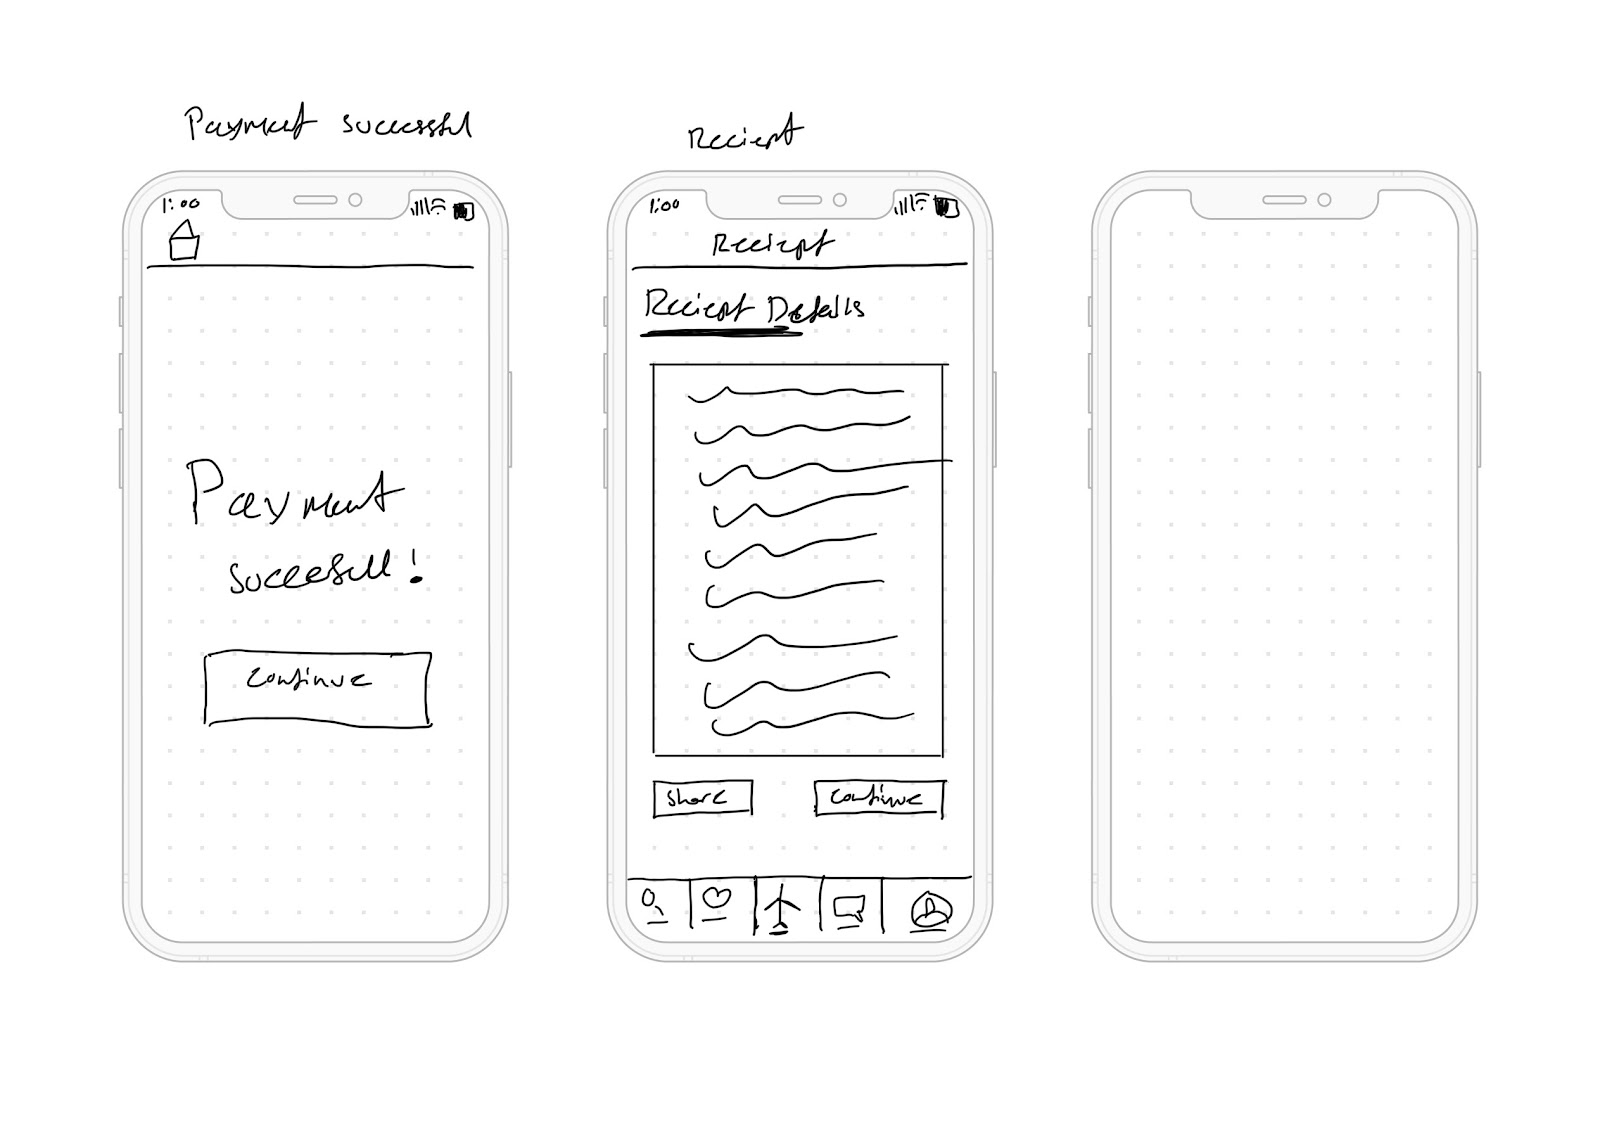 Payment successful
1:00
Payment
successfull!
Continue
Reciept
1:00
Reciept
Reciept Details
Share
Continue